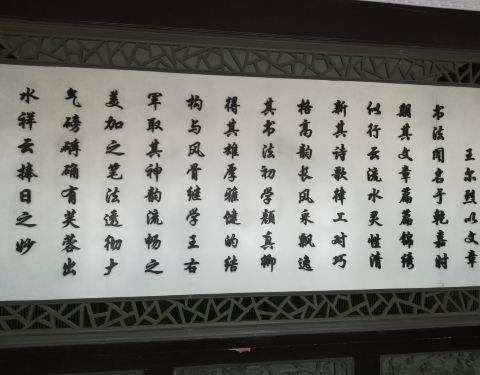 王尔烈以文章
书法闻名于乾嘉时
期其文章篇篇锦绣
似行云流水灵性清
新其诗歌律工对巧
格高韵长风采飘逸
其书法初学颜真卿
得其雄厚雅健的结
构与风骨继学王右
军取其神韵流畅之
美加之笔法透彻大
气磅礴确有芙蓉出
水祥云捧日之妙